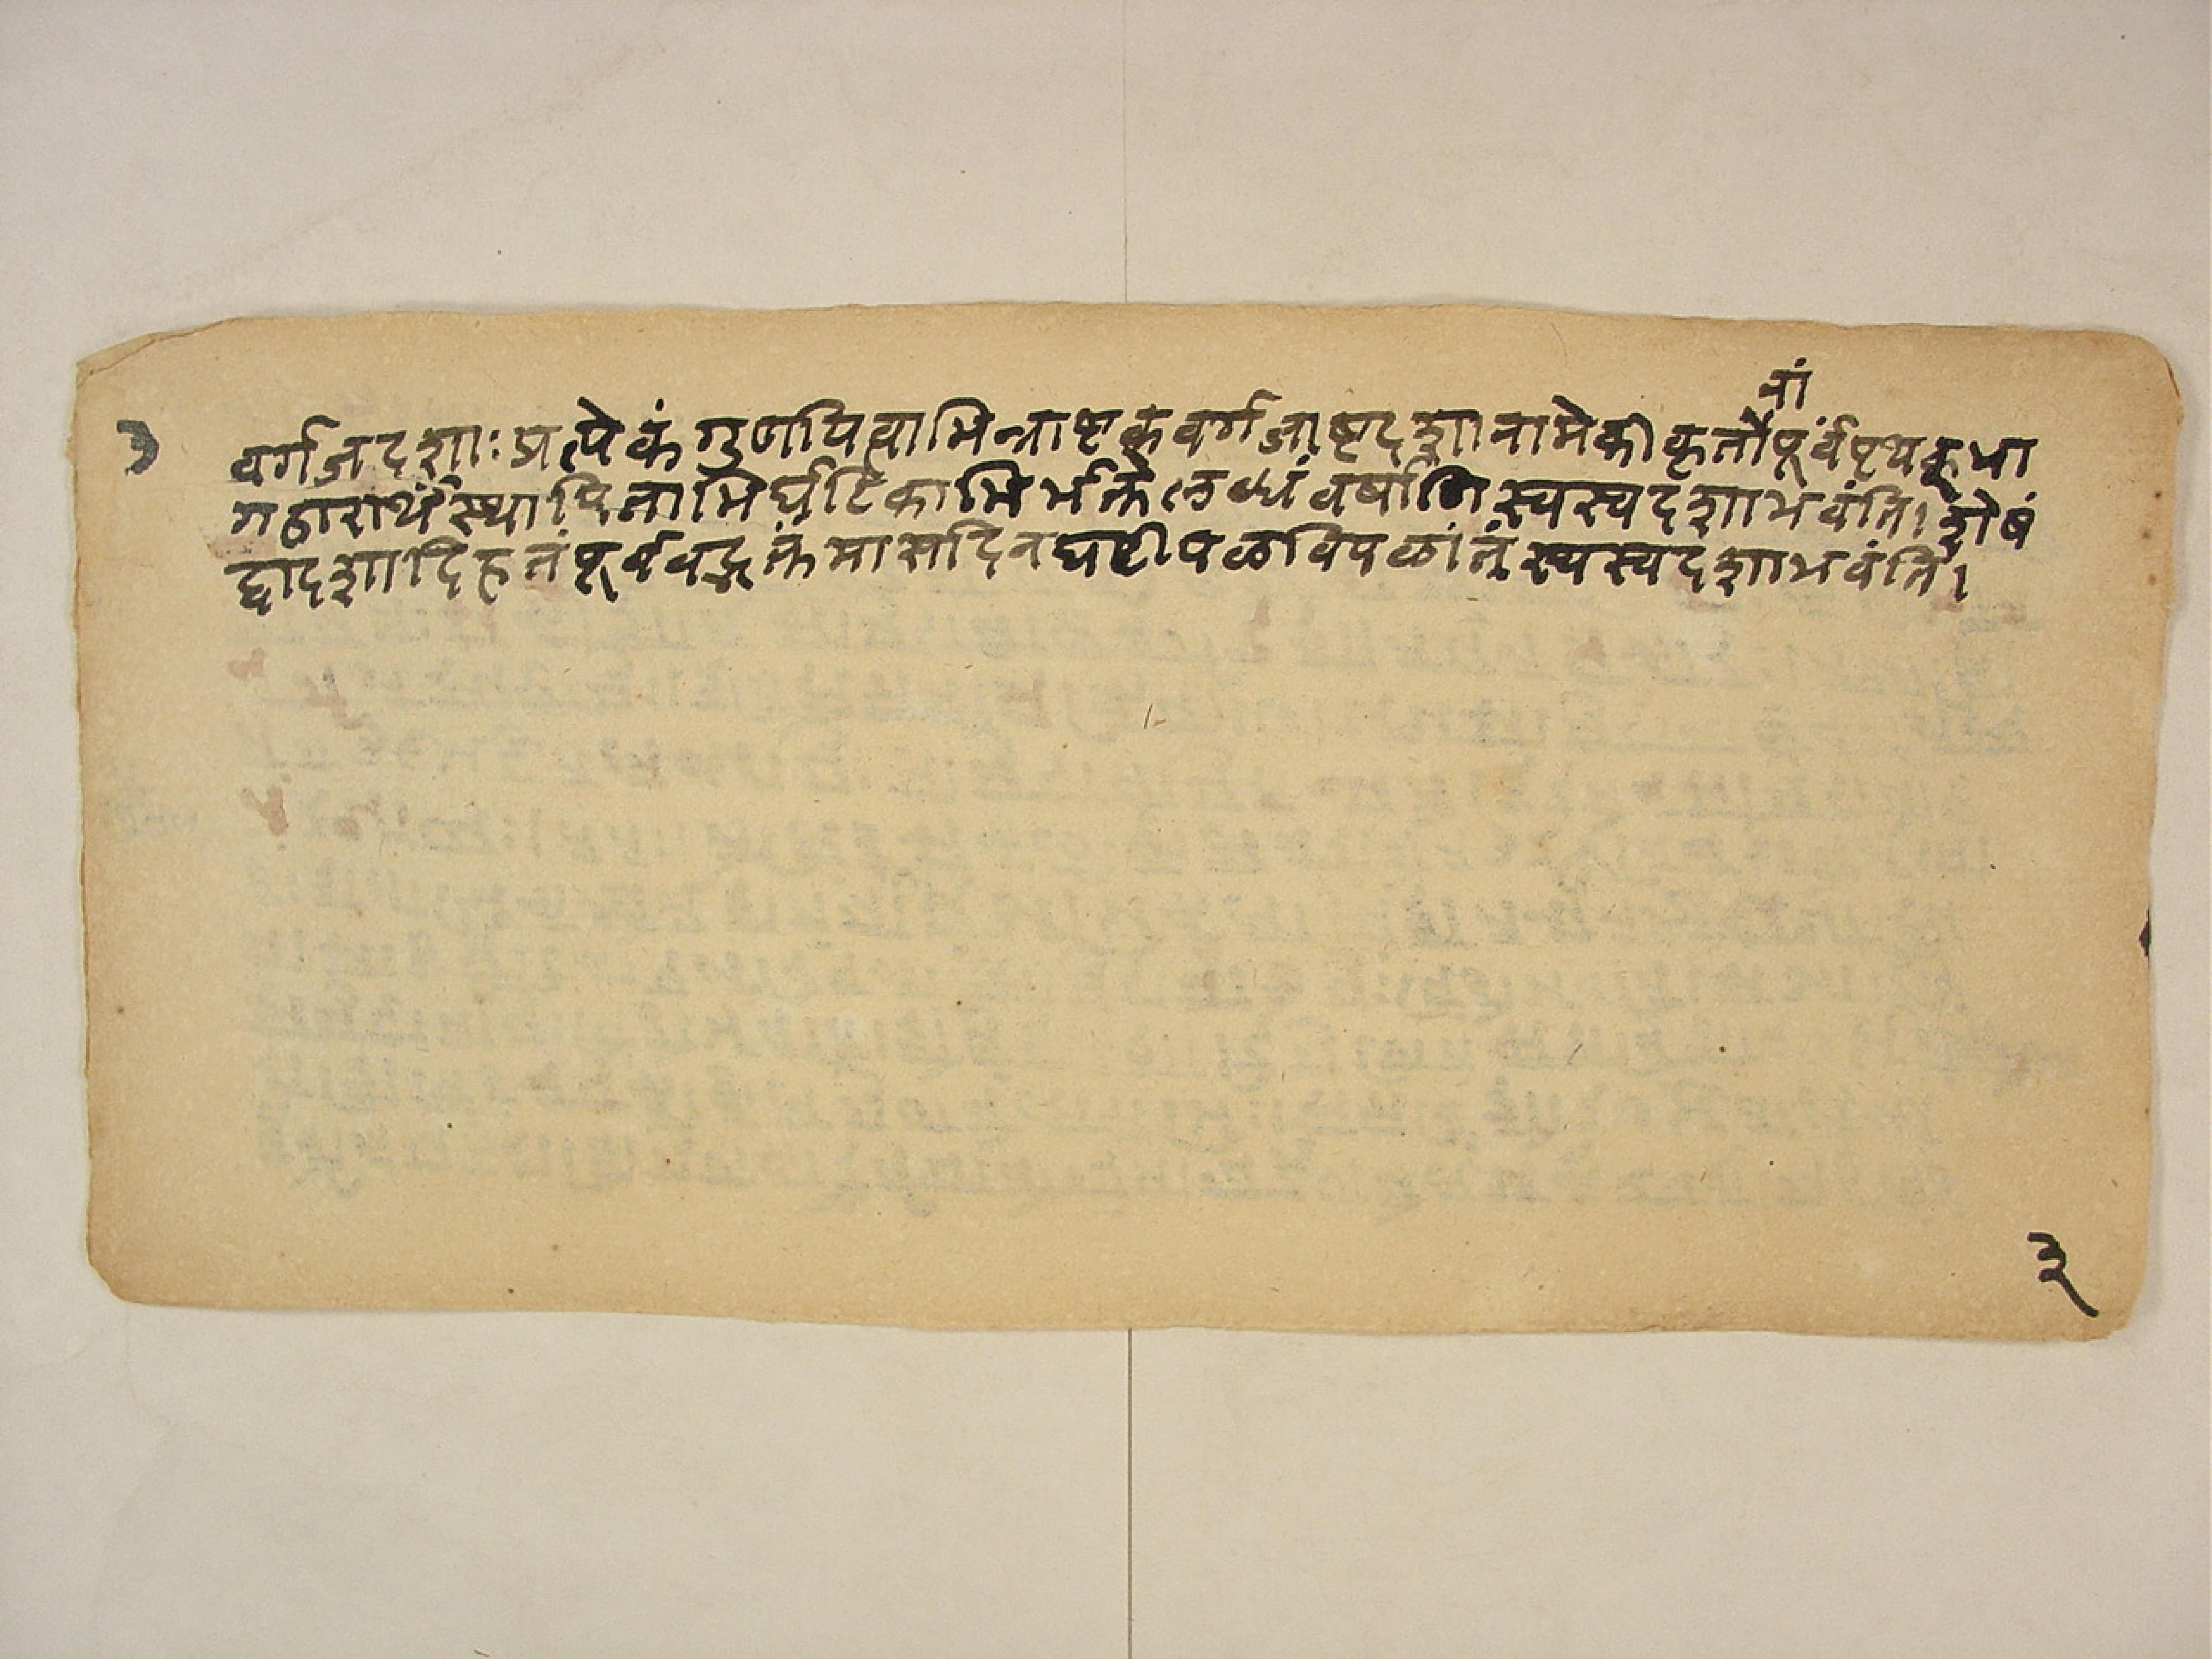 नां
वर्गजदशाः प्रत्येकं गुणयित्वा भिन्नाष्टकवर्गजाष्टदशानामेकीकृतौ पूर्वं पृथक् भा
गहारार्थं स्थापिताभिर्घटिकाभिर्भक्ते लब्धं वर्षाणि स्वस्वदशा भवंति। शेषं
द्वादशादिहतं पूर्ववद्भक्तं मासदिनघटीपळविपळांतं स्वस्वदशा भवंति।
३